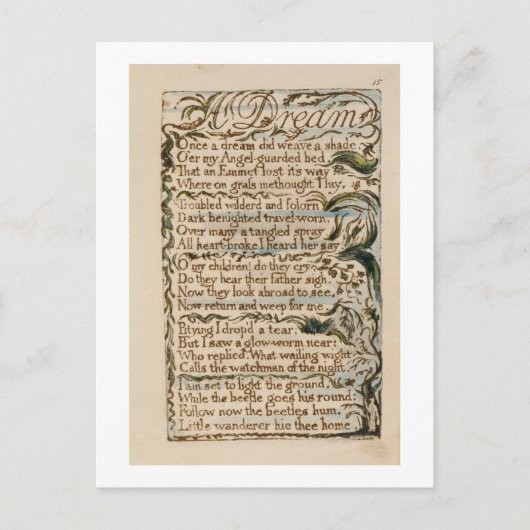 15
A Dream
Once a dream did weave a shade,
O'er my Angel-guarded bed,
That an Emmet lost its way
Where on grass methought I lay.
Troubled wilderd and folorn
Dark benighted travel-worn,
Over many a tangled spray
All heart-broke I heard her say.
O my children! do they cry,
Do they hear their father sigh.
Now they look abroad to see,
Now return and weep for me.
Pitying I drop'd a tear:
But I saw a glow-worm near:
Who replied. What wailing wight
Calls the watchman of the night.
I am set to light the ground,
While the beetle goes his round:
Follow now the beetles hum,
Little wanderer hie thee home.